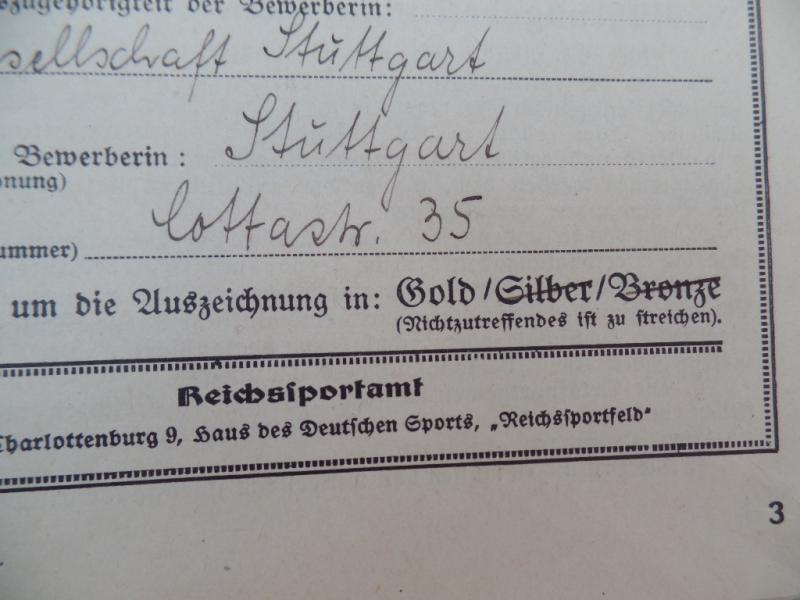 szugehörigkeit der Bewerberin:
sellschaft Stuttgart
Bewerberin: Stuttgart
nung)
Cottastr. 35
ummer)
um die Auszeichnung in: Gold / Silber / Bronze
(Nichtzutreffendes ist zu streichen).
Reichssportamt
Charlottenburg 9, Haus des Deutschen Sports, „Reichssportfeld“
3